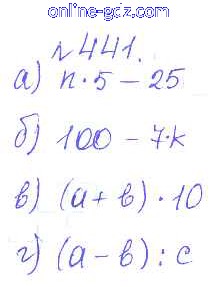 online-gdz.com
№441.
а) n·5 − 25
б) 100 − 7·k
в) (a + b) · 10
г) (a − b) : c